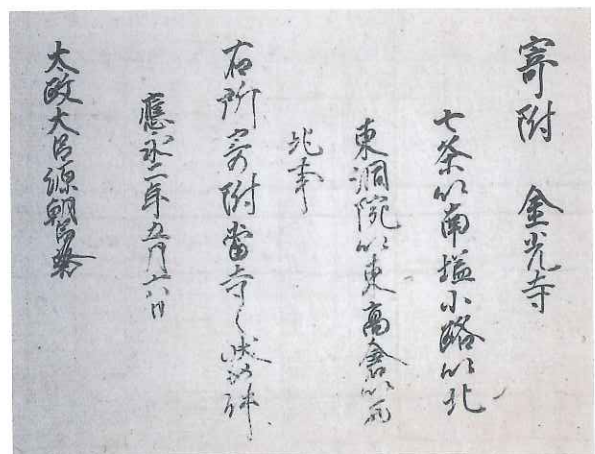 寄附　金光寺
七条以南塩小路以北
東洞院以東高倉以西
地事
右所寄附當寺之状如件
應永二年五月六日
太政大臣源朝臣